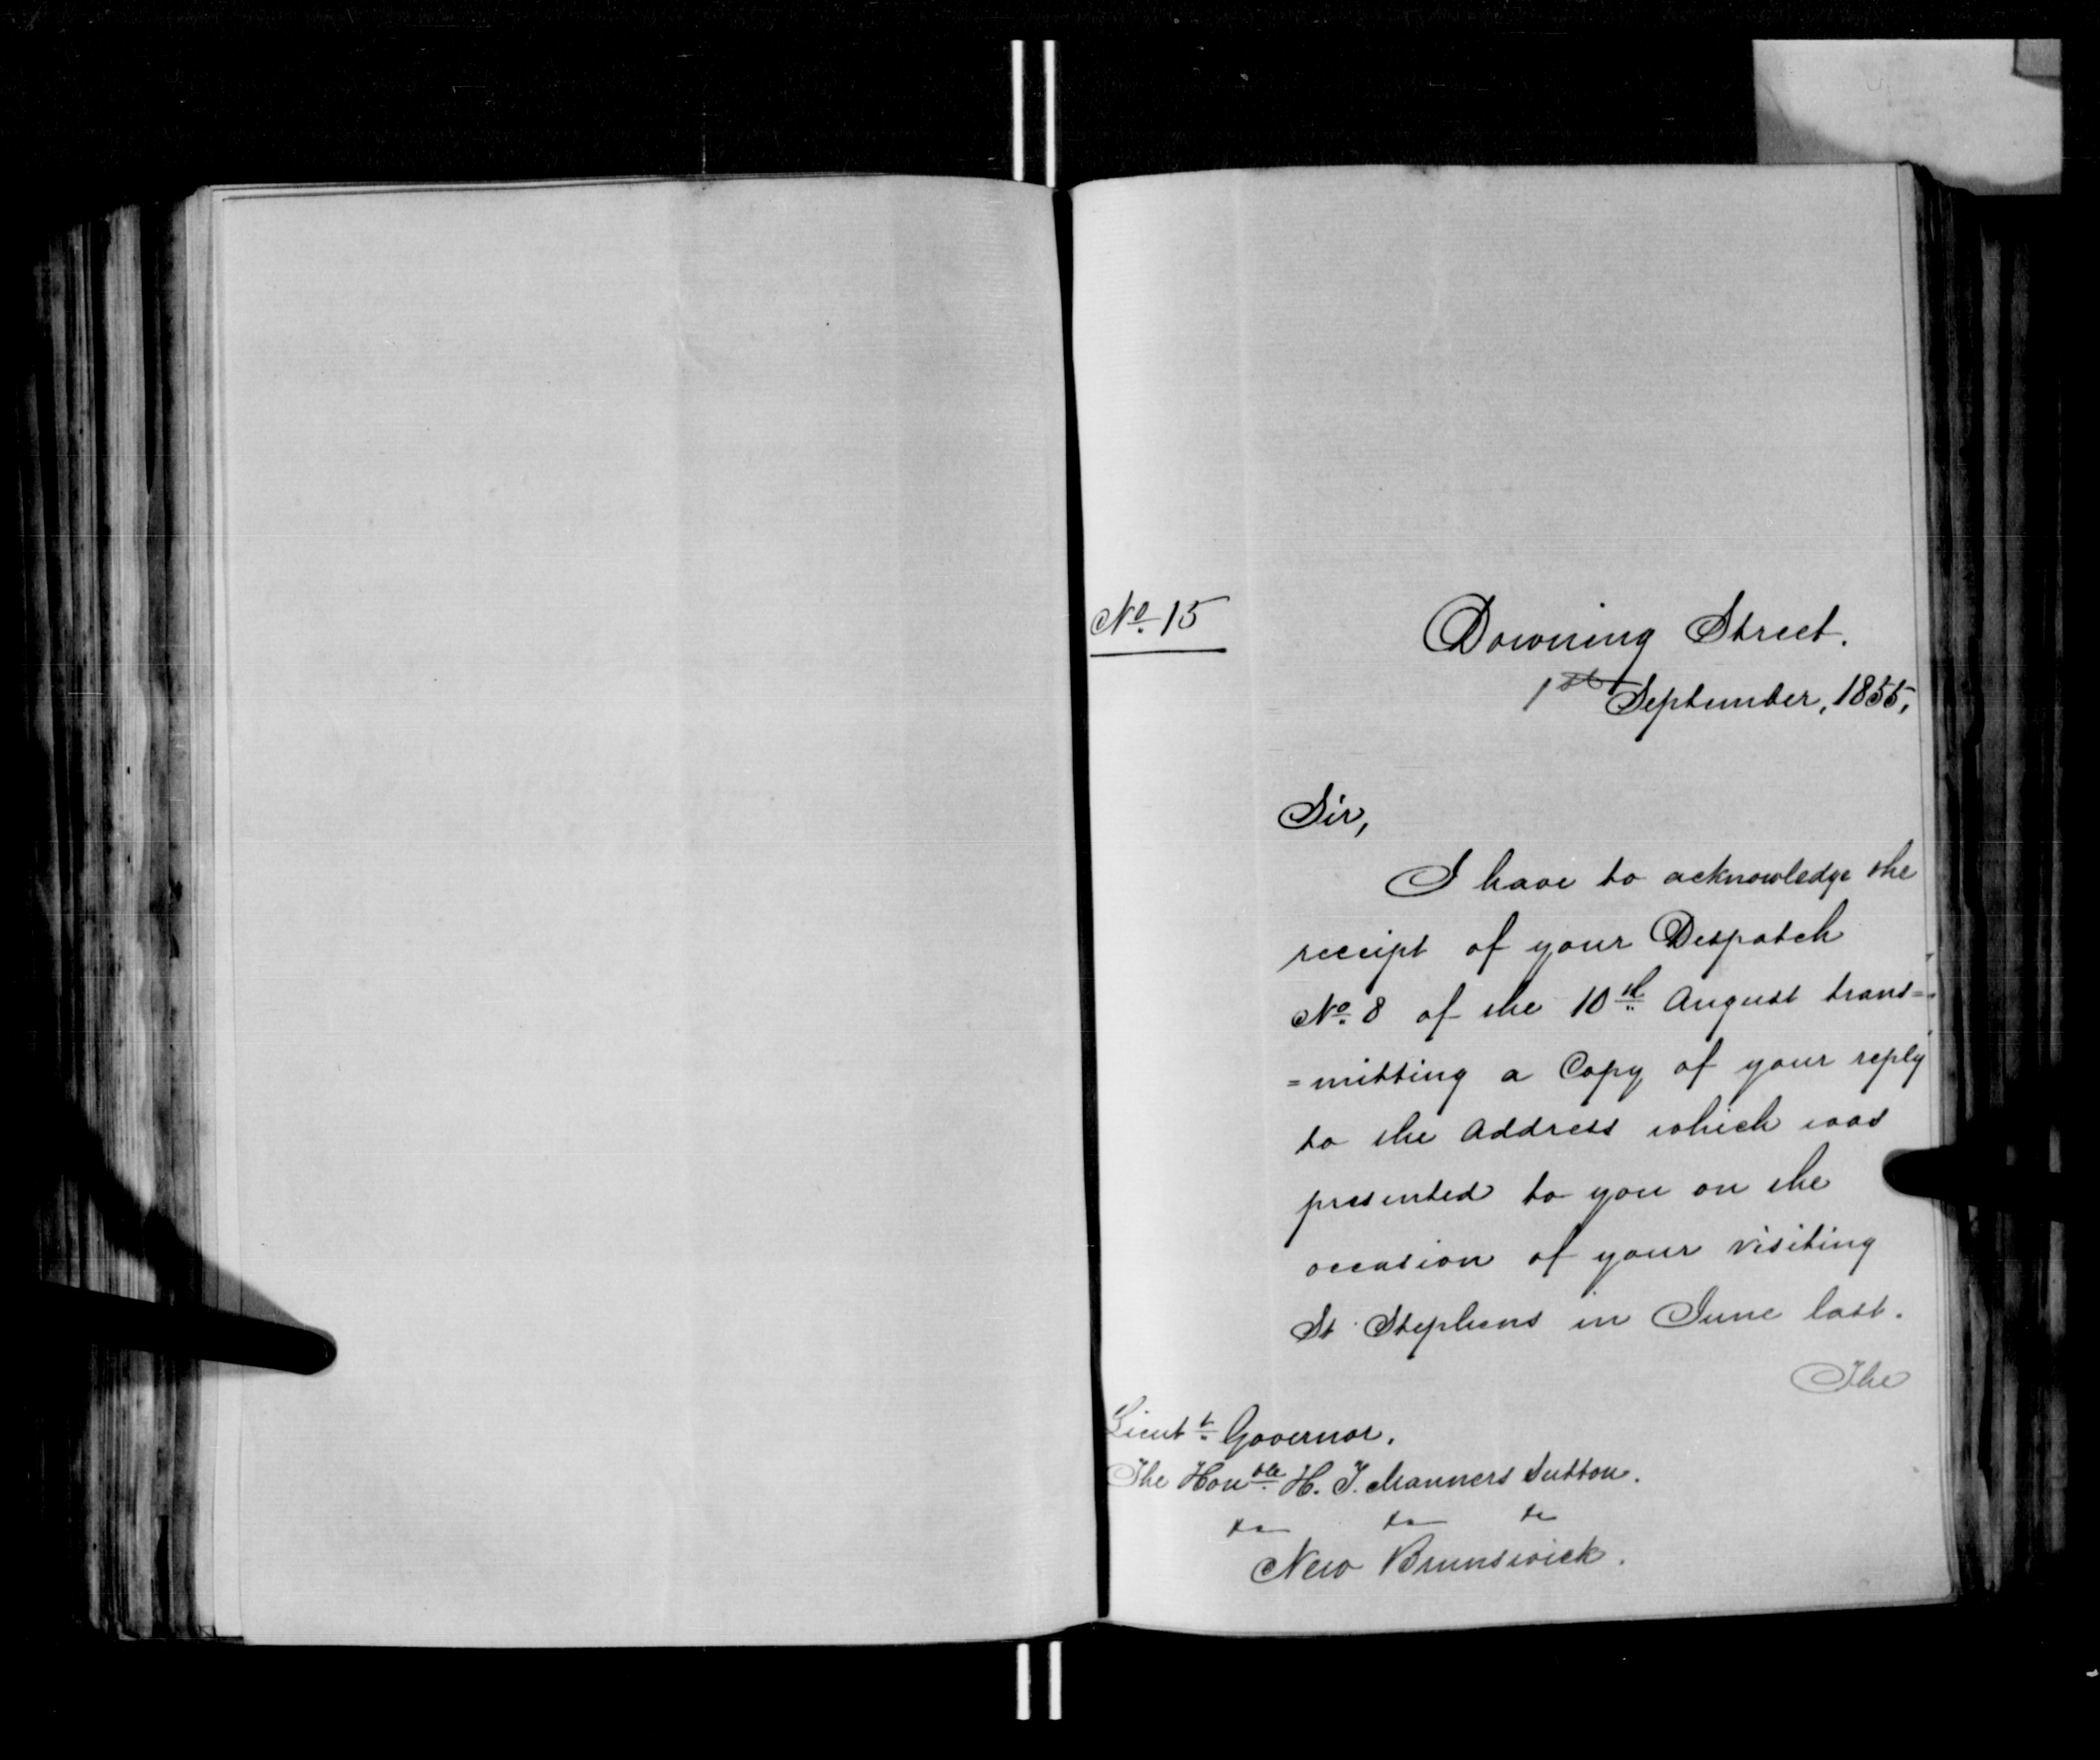 No. 15
Downing Street.
1st September, 1855,
Sir,
I have to acknowledge the
receipt of your Despatch
No. 8 of the 10th August trans=
=mitting a Copy of your reply
to the Address which was
presented to you on the
occasion of your visiting
St Stephens in June last.
The
Lieut t Governor.
The Honble H. T. Manners Sutton.
New Brunswick.